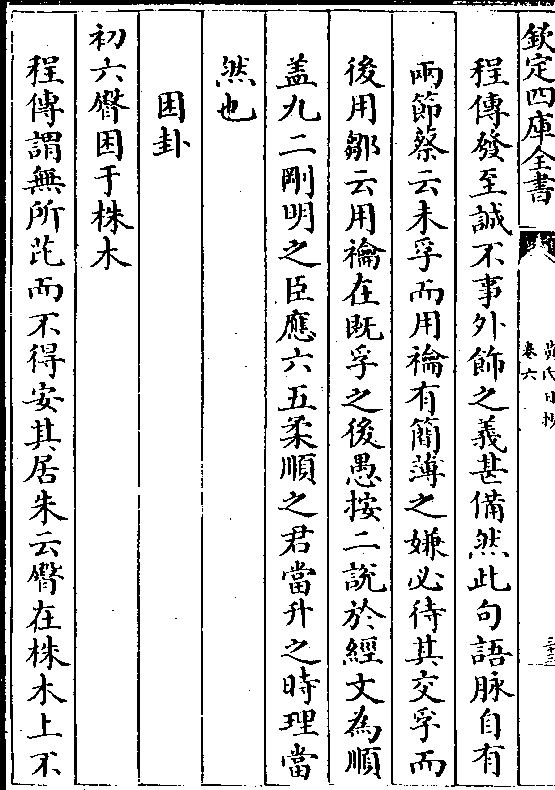 欽定四庫全書
黃氏日抄
卷六
三十三
程傳發至誠不事外飾之義甚備然此句語脉自有
兩節蔡云未孚而用禴有簡薄之嫌必待其交孚而
後用鄒云用禴在既孚之後愚按二說於經文為順
盖九二剛明之臣應六五柔順之君當升之時理當
然也
困卦
初六臀困于株木
程傳謂無所芘而不得安其居朱云臀在株木上不